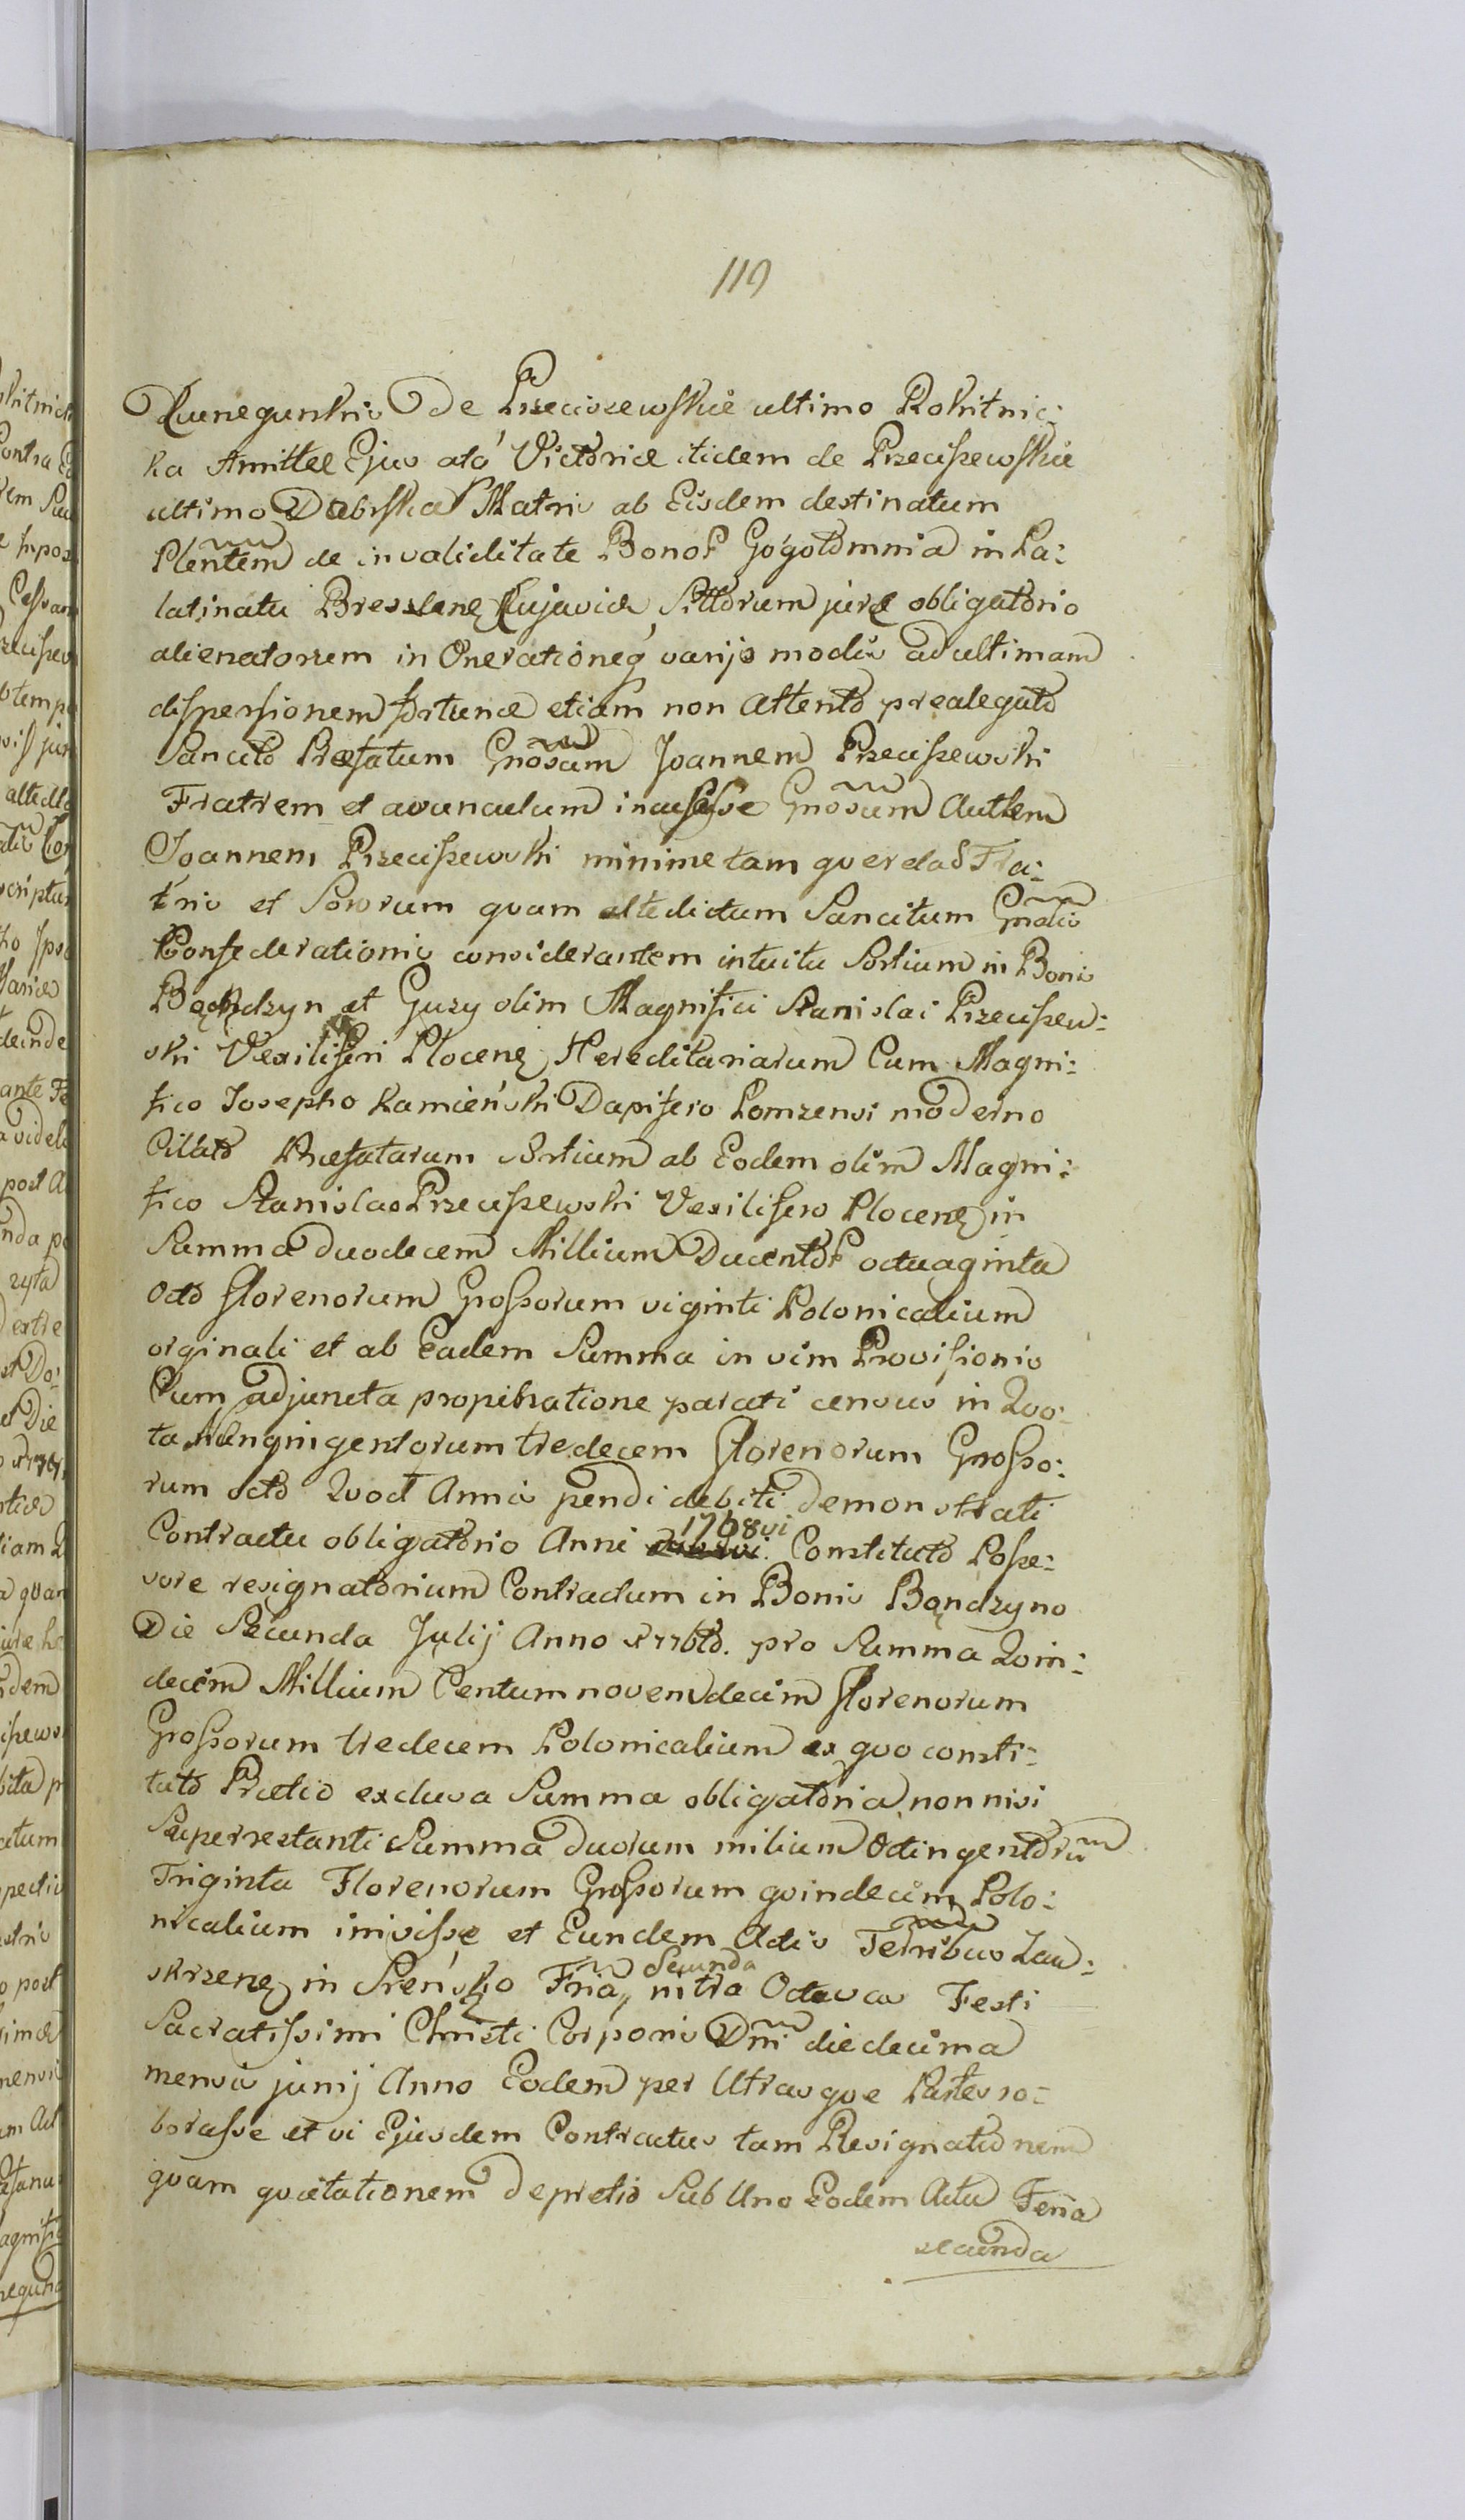 119
Kunegundis De Przeciszewskie ultimo Rokitnic:
ka Amittæ Ejus atq́ Victoriæ itidem de Przeciszewskie
ultimo Dąbska Matris ab Eisdem destinatum
Pleñtem de invaliditate Bonor Gógołomnia in Pa:
latinatu Brestenę Cujaviæ, Sittorum jure obligatorio
alienatorum in Onerationeq́ varijs modis ad ultimam
dispersionem fortunæ etiam non attento prealegato
Sancito Præfatum Gñosum Joannem Przeciszewski
Fratrem et avunculum incusasse Gñosum Autem
Joannem Przeciszewski minime tam querelas Fra:
tris et Sororum quam altedictum Sancitum Gñalis
Confederationis considerantem intuitu Sortium in Bonis
Bądzyn et Guzy olim Magnifici Stanislai Przeciszew:
ski Vexiliferi Plocenę Hereditariarum Cum Magni:
fico Josepho Kamieński Dapifero Lomzensi moderno
Citato Præfatarum Sortium ab Eodem olim Magni:
fico Stanislao Przeciszewski Vexilifero Plocenę in
Summa duodecem Millium Ducentor octuaginta
Octo florenorum Grossorum viginti Polonicalium
orginali et ab Eadem Summa in vim Provisionis
Cum adjuncta propinatione parati census in Quo:
ta quingentorum tredecem florenorum Grosso:
rum octo Quot Annis pendi debiti demonstrati
Contractu obligatorio Anni 1768vi Constituto Posse:
sore resignatorium Contractum in Bonis Bądzyno
Die Secunda Julij Anno 1776to. pro Summa Quin:
decim Millium Centum novemdecim florenorum
Grossorum tredecem Polonicalium ex quo consti:
tuto Prætio exclusa Summa obligatoria non nisi
Superrestanti Summa duorum milium Octingentorũ
Triginta Florenorum Grossorum quindecim Polo:
nicalium inivisse et Eundem Actis Terribus Zau:
skrzenę in Sreńsko Fria Secunda intra Octavas Festi
Sacratissimi Christi Corporis Dñi die decima
mensis junij Anno Eodem per Utrasque Partes ro:
borasse et vi Ejusdem Contractus tam Resignationem
quam quietationem de pretio Sub Uno Eodem Actu Feria
secunda